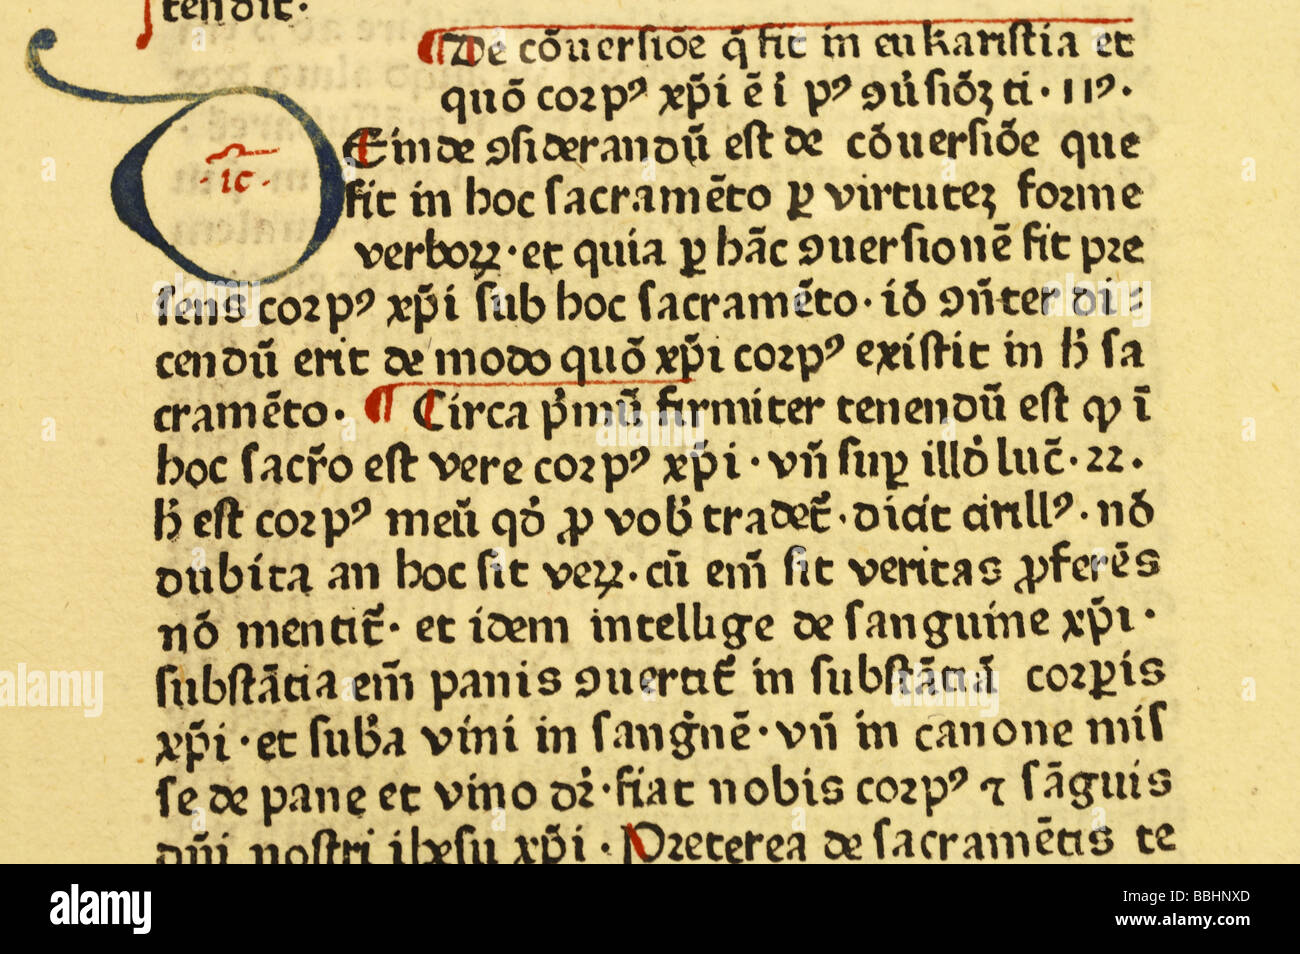 tendit.
¶ De cōuersiōe q̄ fit in eukaristia et
quō corpꝰ xp̄i ē i pꝰ ꝯu̓siōꝫ ti. 11ꝰ.
·ic·
Einde ꝯsiderandū est de cōuersiōe que
fit in hoc sacramēto ꝑ virtuteꝫ forme
verboꝝ. et quia ꝑ hāc ꝯuersionē fit pre
sens corpꝰ xp̄i sub hoc sacramēto. iō ꝯn̄ter di:
cendū erit de modo quō xp̄i corpꝰ existit in h̄ sa
cramēto. ¶ Circa p̓mū firmiter tenendū est ꝙ ī
hoc sacr̄o est vere corpꝰ xp̄i. vn̄ suꝑ illō luc̄. 22.
h̄ est corpꝰ meū qō ꝓ vob̓ tradet̄. dicit cirillꝰ. nō
dubita an hoc sit veꝝ. cū em̄ sit veritas ꝓferēs
nō mentit̄. et idem intellige de sanguine xp̄i.
substātia em̄ panis ꝯuertit̄ in substātiā corꝑis
xp̄i. et sub̓a vini in sang̓nē. vn̄ in canone mis
se de pane et vino dr̓. fiat nobis corpꝰ ⁊ sāguis
dn̄i nostri ihesu xp̄i. Preterea de sacramētis te
alamy
Image ID: BBHNXD
www.alamy.com